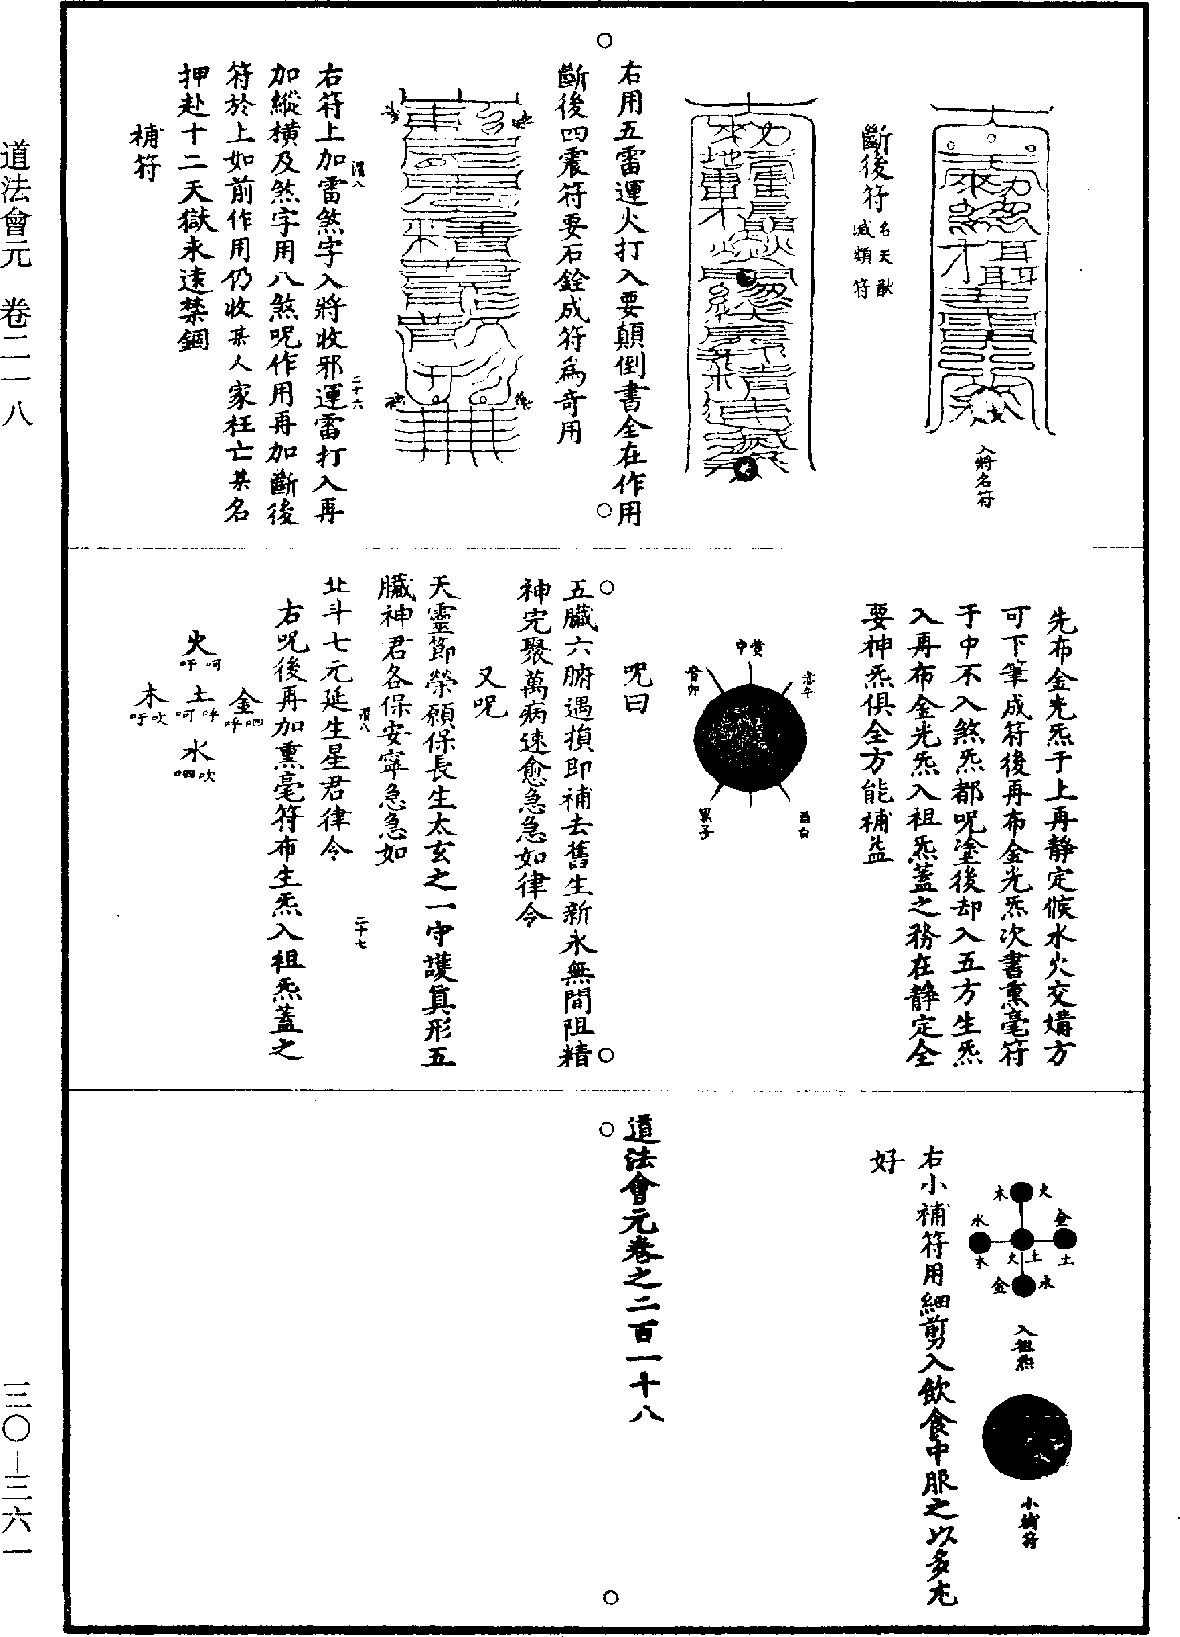 入將名符
斷後符
名天獄
滅類符
右用五雷運火打入要顛倒書全在作用
斷後四震符要石銓成符為奇用
右符上加雷煞字入將收邪運雷打入再
加縱橫及煞字用八煞呪作用再加斷後
符於上如前作用仍收某人家枉亡某名
押赴十二天獄永遠禁錮
補符
先布金光炁于上再靜定候水火交媾方
可下筆成符後再布金光炁次書熏毫符
于中不入煞炁都呪塗後却入五方生炁
入再布金光炁入祖炁蓋之務在靜定全
要神炁俱全方能補益
赤午
中黃
青卯
黑子
酉白
呪曰
五臟六腑遇損即補去舊生新永無間阻精
神完聚萬病速愈急急如律令
又呪
天靈節榮願保長生太玄之一守護真形五
臟神君各保安寧急急如
北斗七元延生星君律令
右呪後再加熏毫符布生炁入祖炁蓋之
火
呵吁
金
呬呼
土
呼呵
木
吹吁
水
吹呬
火
木
金
土
土
火
水
木
水
金
入祖炁
小補符
右小補符用細剪入飲食中服之以多尤
好
道法會元卷之二百一十八
二十六
二十七
道法會元 卷二一八
三〇–三六一